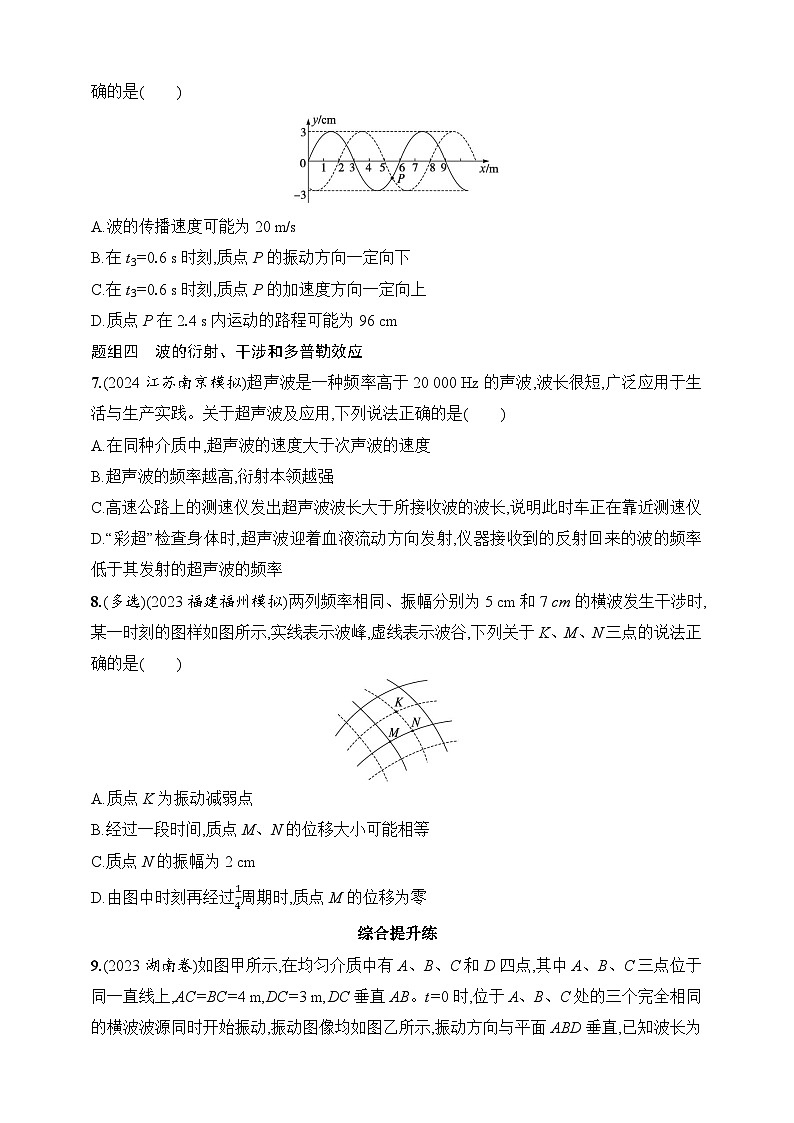 确的是(　　)
y/cm
3
0
1 2 3 4 5 6 7 8 9
x/m
P
−3
A.波的传播速度可能为 20 m/s
B.在 t₃=0.6 s 时刻,质点 P 的振动方向一定向下
C.在 t₃=0.6 s 时刻,质点 P 的加速度方向一定向上
D.质点 P 在 2.4 s 内运动的路程可能为 96 cm
题组四　波的衍射、干涉和多普勒效应
7.(2024 江苏南京模拟)超声波是一种频率高于 20 000 Hz 的声波,波长很短,广泛应用于生
活与生产实践。关于超声波及应用,下列说法正确的是(　　)
A.在同种介质中,超声波的速度大于次声波的速度
B.超声波的频率越高,衍射本领越强
C.高速公路上的测速仪发出超声波波长大于所接收波的波长,说明此时车正在靠近测速仪
D.“彩超”检查身体时,超声波迎着血液流动方向发射,仪器接收到的反射回来的波的频率
低于其发射的超声波的频率
8.(多选)(2023 福建福州模拟)两列频率相同、振幅分别为 5 cm 和 7 cm 的横波发生干涉时,
某一时刻的图样如图所示,实线表示波峰,虚线表示波谷,下列关于 K、M、N 三点的说法正
确的是(　　)
K
N
M
A.质点 K 为振动减弱点
B.经过一段时间,质点 M、N 的位移大小可能相等
C.质点 N 的振幅为 2 cm
D.由图中时刻再经过1/4周期时,质点 M 的位移为零
综合提升练
9.(2023 湖南卷)如图甲所示,在均匀介质中有 A、B、C 和 D 四点,其中 A、B、C 三点位于
同一直线上,AC=BC=4 m,DC=3 m,DC 垂直 AB。t=0 时,位于 A、B、C 处的三个完全相同
的横波波源同时开始振动,振动图像均如图乙所示,振动方向与平面 ABD 垂直,已知波长为